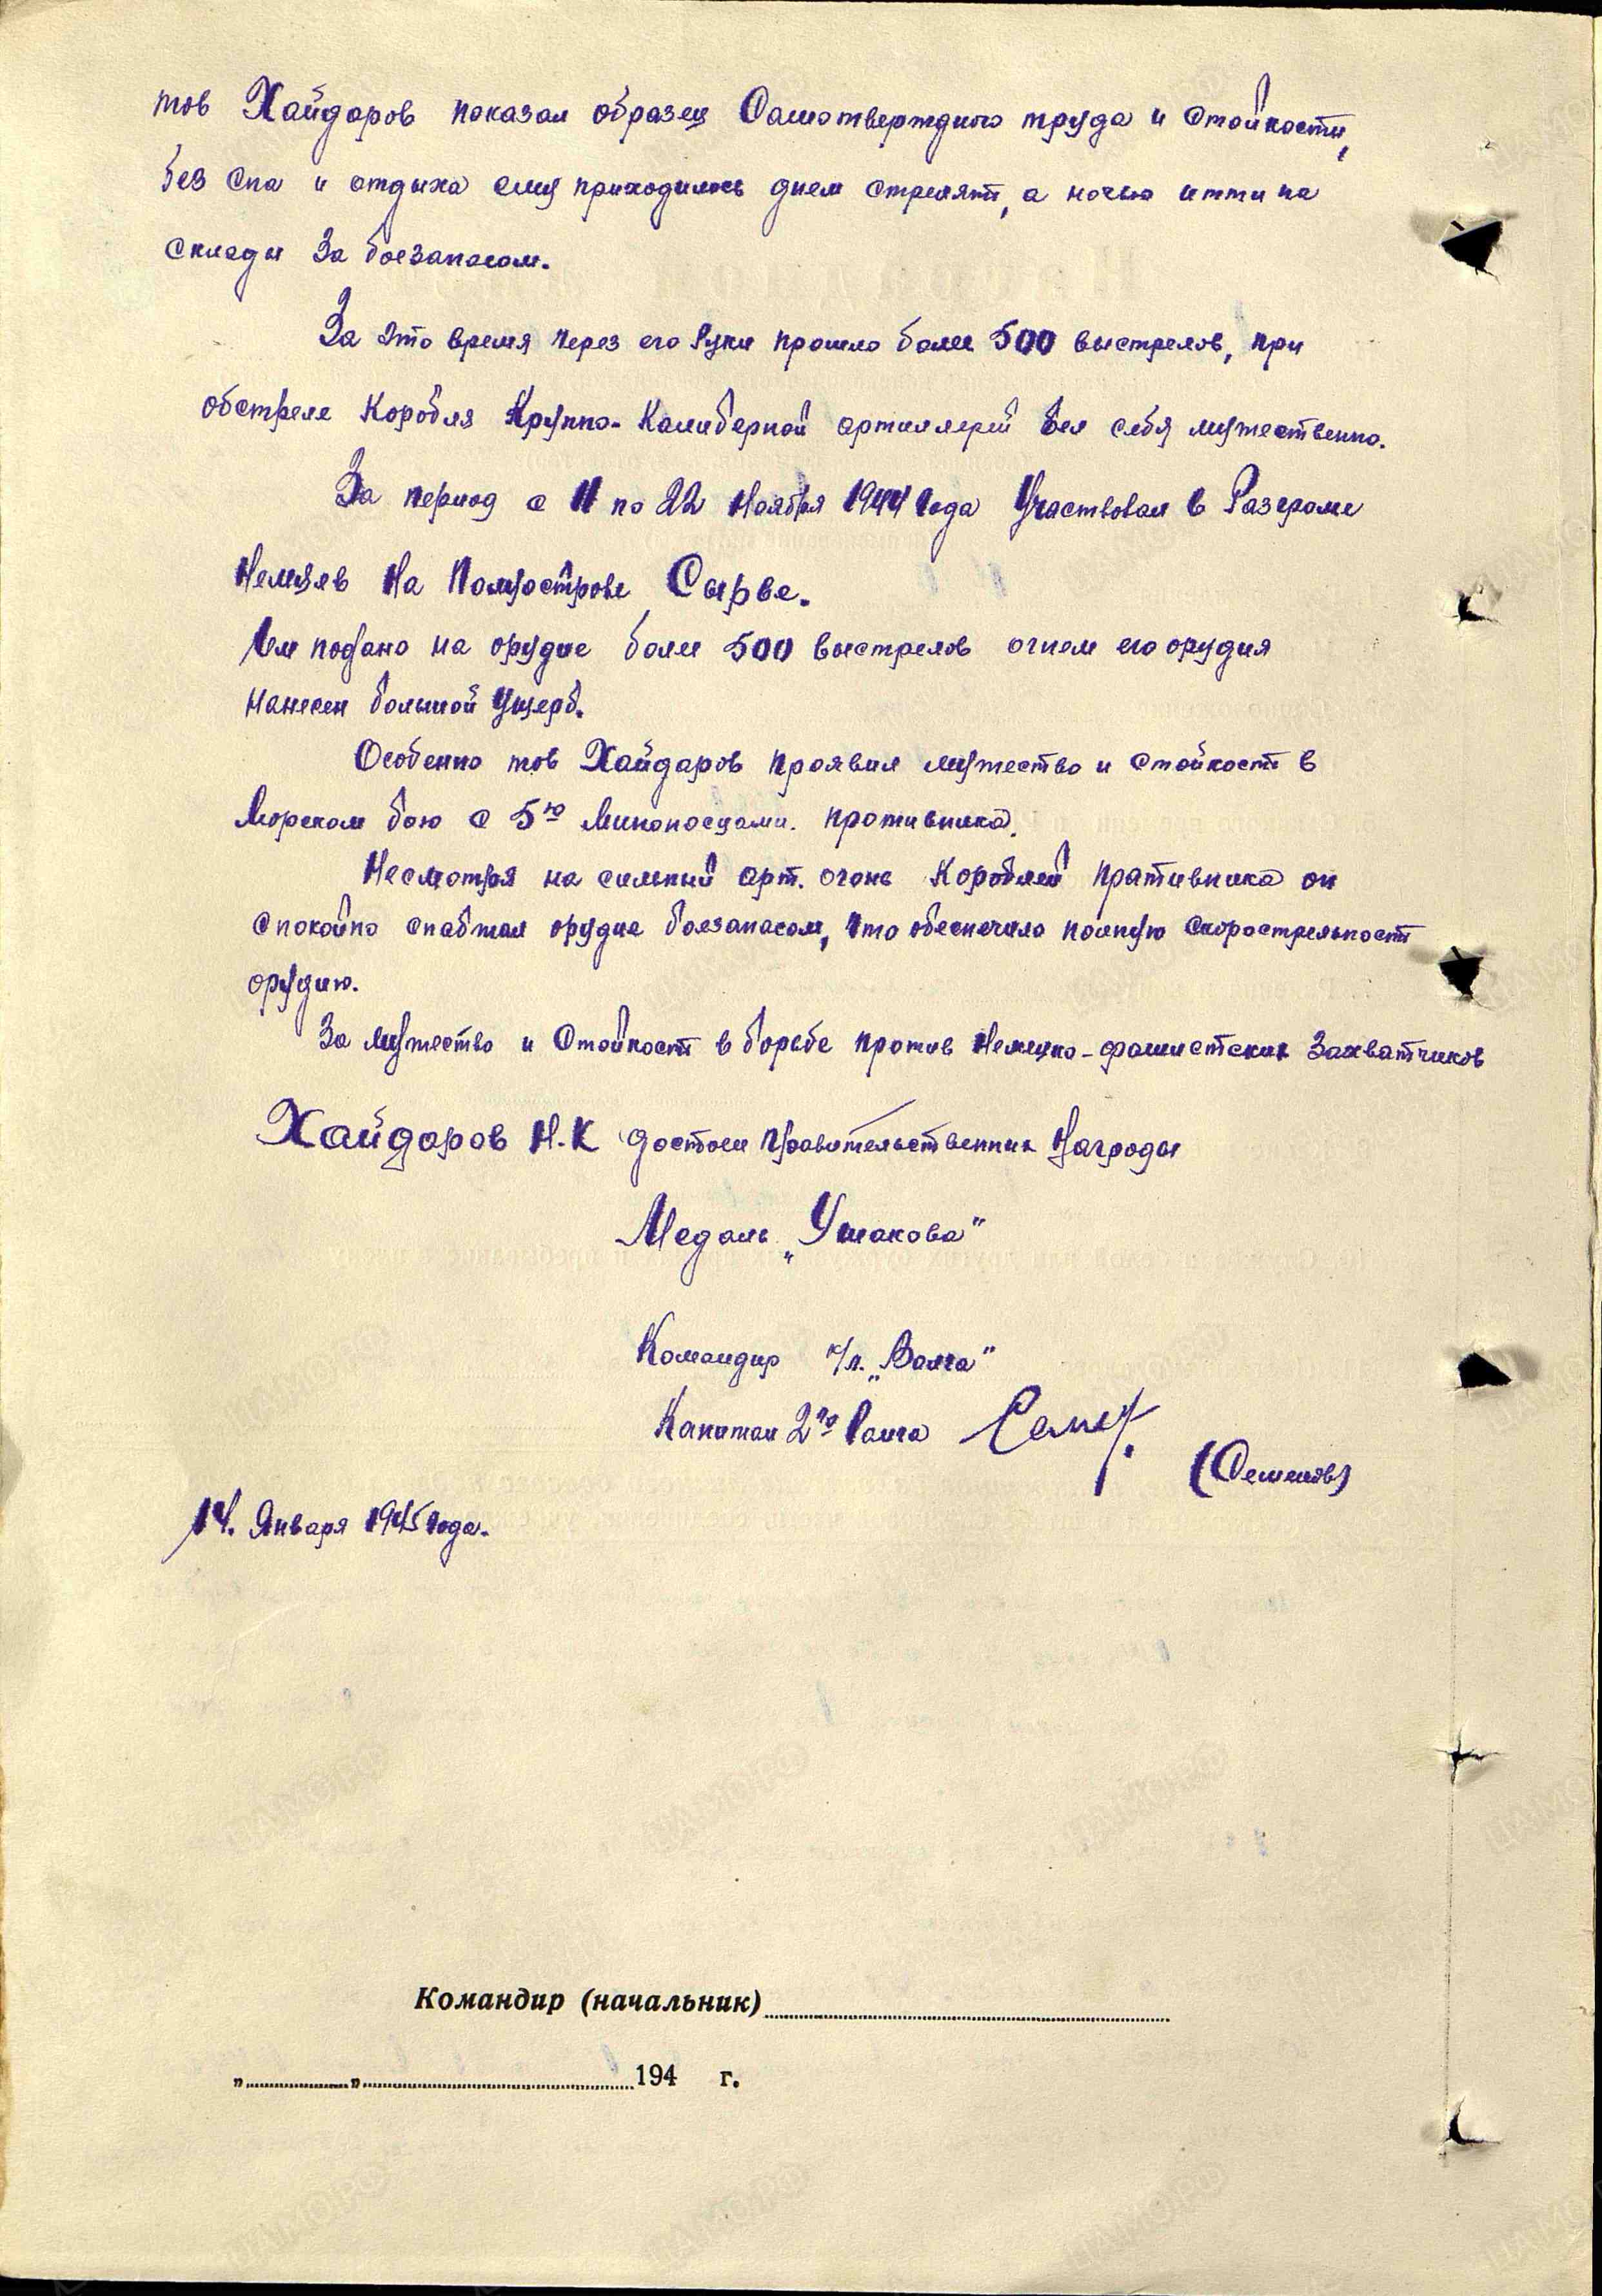 тов Хайдаров показал образец Самотверждного труда и Стойкости,
без Сна и отдыха ему приходилось днем стрелят, а ночью итти на
склады За боезапасом.
За Это время через его Руки прошло более 500 выстрелов, при
обстреле Коробля Крупно-Калиберной артиллерий вел себя мужественно.
За период с 11 по 22 Ноября 1944 года Участвовал в Разгроме
Немцев На Полуострове Сырве.
Им подано на орудие более 500 выстрелов огнем его орудия
нанесен большой Ущерб.
Особенно тов Хайдаров проявил мужество и Стойкост в
Морском бою с 5ю Миноносцами. противника.
Несмотря на сильный арт. огонь Кораблей пративника он
Спокойно снабжал орудие боезапасом, что обеспечило полную Скорострельност
орудию.
За мужество и Стойкост в борьбе против Немецко-фашистских Захватчиков
Хайдаров Н.К достоен Правительственних Награды
Медаль „Ушакова"
Командир к/л. „Волга"
Капитан 2го Ранга
(Семенов)
14. Января 1945 года.
Командир (начальник)
„ „ 194 г.